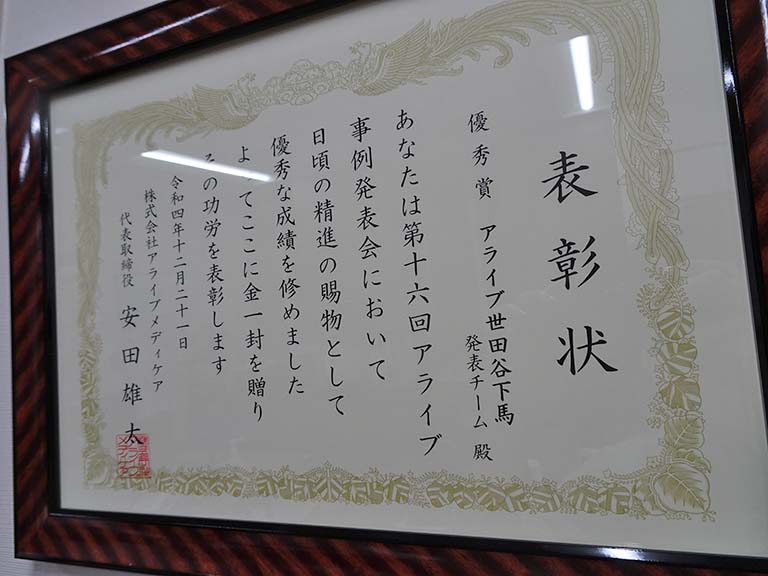 表彰状
優秀賞 アライブ世田谷下馬
発表チーム 殿
あなたは第十六回アライブ
事例発表会において
日頃の精進の賜物として
優秀な成績を修めました
よってここに金一封を贈り
その功労を表彰します
令和四年十二月二十一日
株式会社アライブメディケア
代表取締役 安田雄太